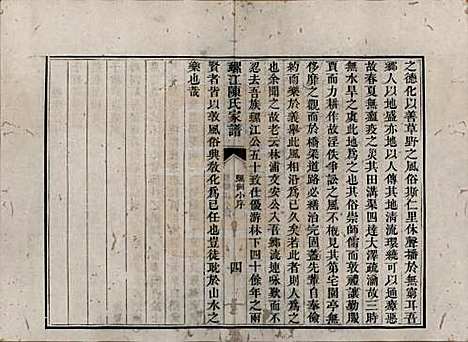 之德化以善草野之風俗斯仁里休聲播於無窮耳吾
鄉人以地盛亦地以人傳其地清流環繞可以通癘惡
故春夏無蘊疫之災其田溝渠四達大澤疏瀹故三時
無水旱之虞此地為之也其俗崇師儒而敦禮讓勤服
賈而力耕作故淫佚爭訟之風不概見其第宅園亭無
侈靡之觀而於橋梁道路必繕治完固蓋先輩自奉儉
約而樂於義舉此風相沿為已久矣若此者則人為之
也余聞之故老云林浦文安公入吾鄉流連咏歎而不
忍去吾族螺江公五十致仕優游林下四十餘年之兩
賢者皆以敦風俗興教化為已任豈徒耽於山水之
樂也哉
螺江陳氏家譜
螺洲小序
四